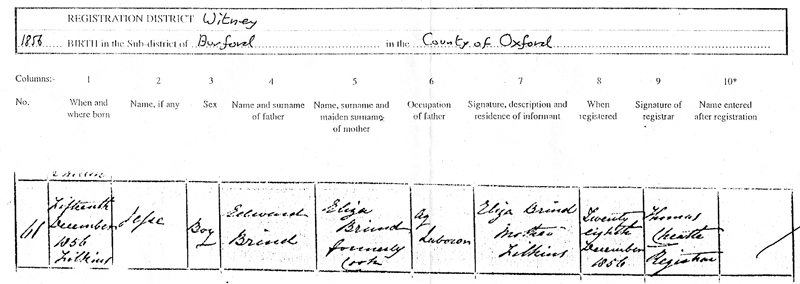 REGISTRATION DISTRICT Witney
1856 BIRTH in the Sub-district of Burford in the County of Oxford
Columns:- 1 2 3 4 5 6 7 8 9 10*
No. When and where born Name, if any Sex Name and surname of father Name, surname and maiden surname of mother Occupation of father Signature, description and residence of informant When registered Signature of registrar Name entered after registration
61
Fifteenth
December
1856
Filkins
Jesse
Boy
Edward
Brind
Eliza
Brind
formerly
Cook
Ag
Labourer
Eliza Brind
Mother
Filkins
Twenty
eighth
December
1856
Thomas
Cheatle
Registrar